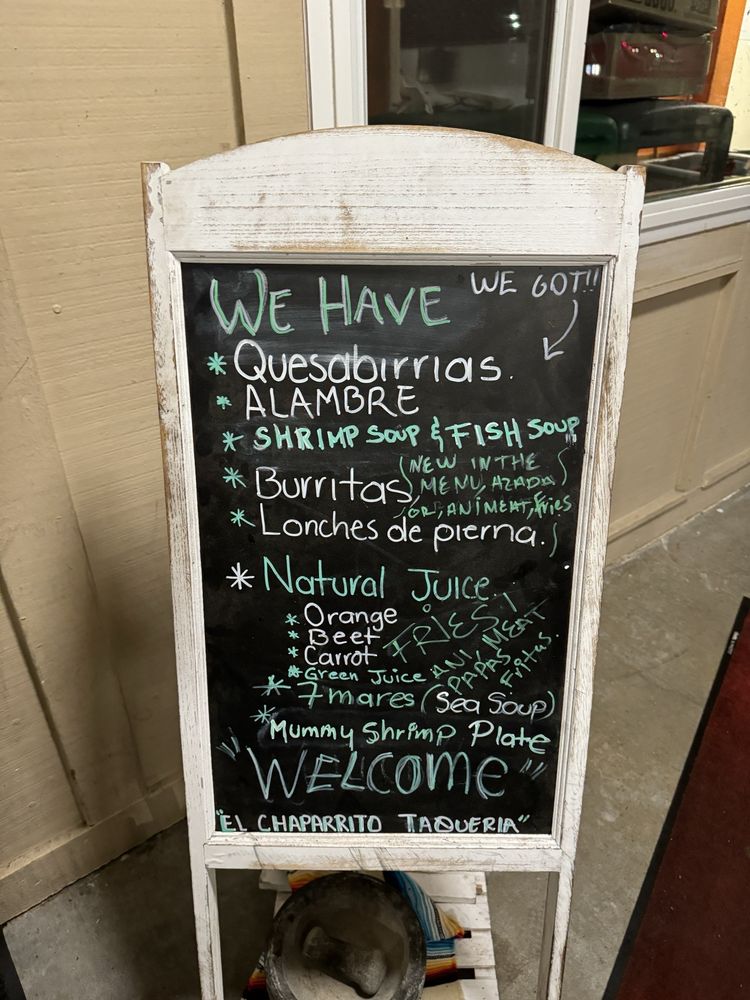 WE HAVE
WE GOT!!
* Quesabirrias.
* ALAMBRE
* SHRIMP SOUP & FISH SOUP
* Burritas
(NEW IN THE
MENU, AZADA
OR ANI MEAT, Fries)
* Lonches de pierna.
* Natural Juice.
* Orange
* Beet
* Carrot
* Green Juice
FRIES!
ANI MEAT
PAPAS
Fritas.
* 7 mares (Sea Soup)
* Mummy Shrimp Plate
"WELCOME"
"EL CHAPARRITO TAQUERIA"